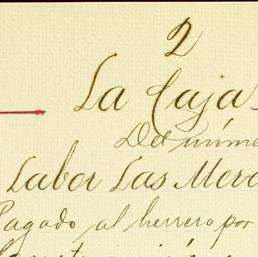 2
La Caja
Del
Labor Las
Pagado al herrero por